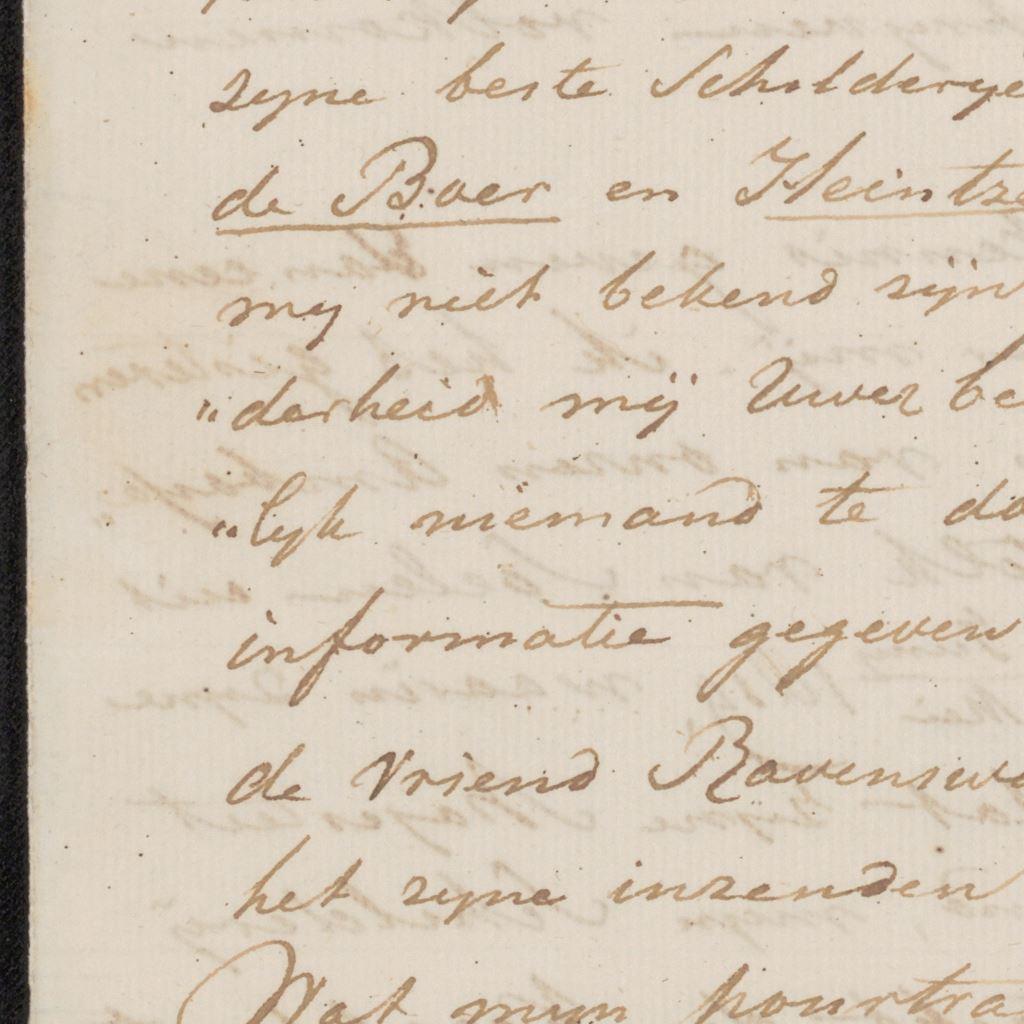 zyne beste Schilderye
de Boer en Heintze
my niet bekend zijn
„derheid mij Uwer be
„lyk niemand te do
informatie gegeven
de Vriend Ravenswa
het zyne inzenden
Wat myn pourtra